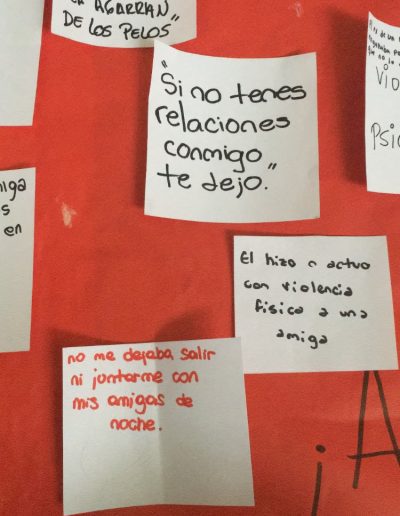 AGARRAN
DE LOS PELOS"
"Si no tenes
relaciones
conmigo
te dejo."
VIO
PSIC
en
El hizo o actuo
con violencia
fisica a una
amiga
no me dejaba salir
ni juntarme con
mis amigas de
noche.
¡A